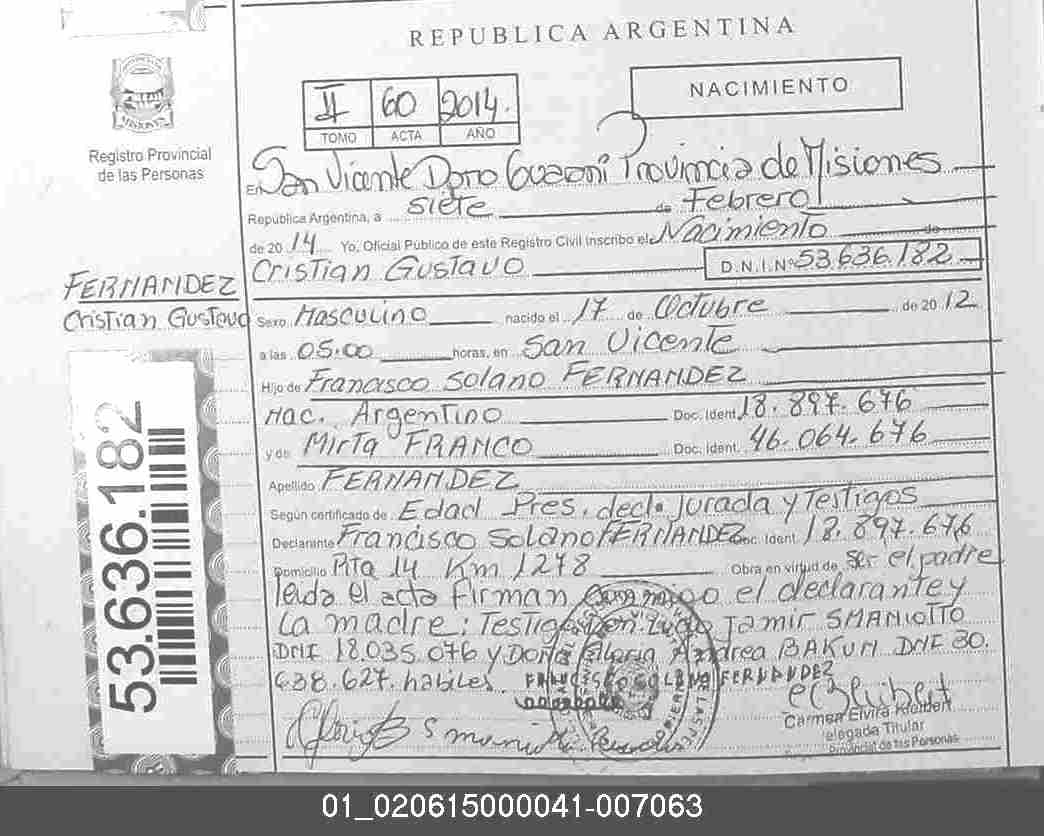 REPUBLICA ARGENTINA
NACIMIENTO
II 60 2014.
TOMO ACTA AÑO
MISIONES
Registro Provincial
de las Personas
En San Vicente Dpto Guaraní Provincia de Misiones
República Argentina, a siete de Febrero
de 2014 Yo, Oficial Público de este Registro Civil inscribo el Nacimiento de
Cristian Gustavo D.N.I.Nº 53.636.182
FERNANDEZ
Cristian Gustavo
Sexo Masculino nacido el 17 de Octubre de 2012
a las 05:00 horas, en San Vicente
Hijo de Francisco Solano FERNANDEZ
Nac. Argentino Doc. Ident. 18.897.676
y de Mirta FRANCO Doc. Ident. 46.064.676
Apellido FERNANDEZ
Según certificado de Edad Pres. decl. jurada y Testigos
Declarante Francisco Solano FERNANDEZ Doc. Ident. 18.897.676
Domicilio Rta 14 Km 1278 Obra en virtud de ser el padre
leida el acta firman conmigo el declarante y
La madre: Testigo Don Lucio Jamir SMANIOTTO
DNI 18.035.076 y Doña Andrea BAKUN DNI 30.
638.627. habiles. FRANCISCO SOLANO FERNANDEZ
Carmen Elvira
Delegada Titular
Provincial de las Personas
53.636.182
01_020615000041-007063